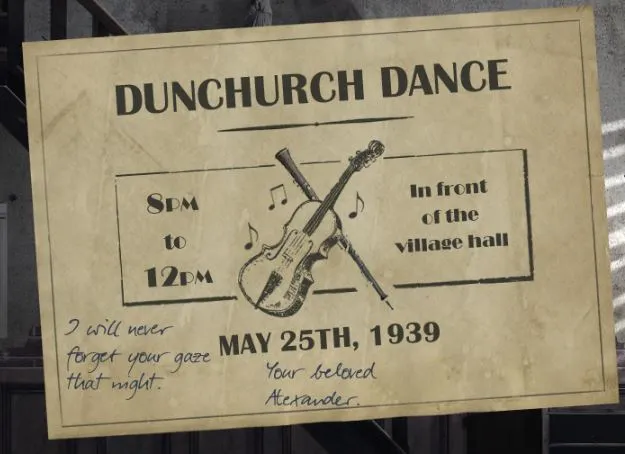 DUNCHURCH DANCE
8PM
to
12PM
In front
of the
village hall
MAY 25TH, 1939
I will never
forget your gaze
that night.
Your beloved
Alexander.